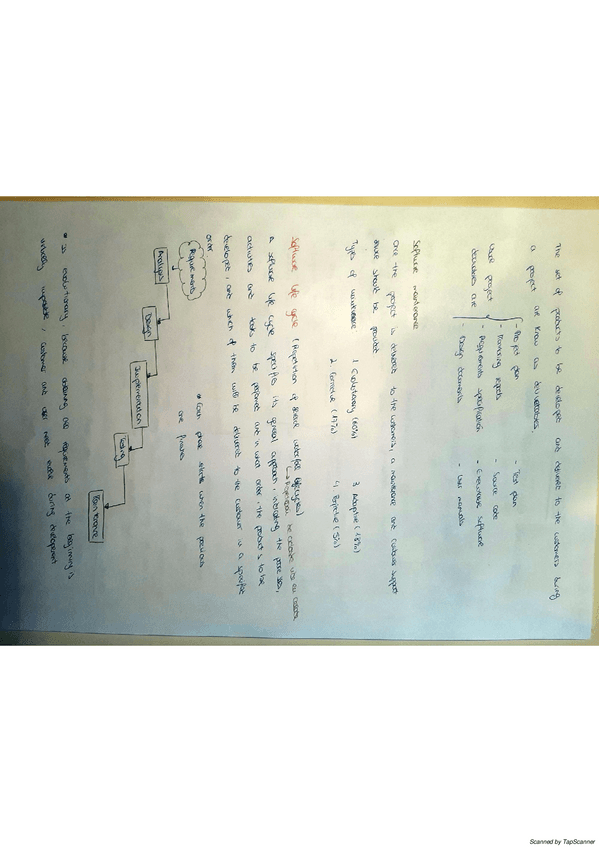 The set of products to be developed and delivered to the customers during
a project are know as deliverables.
- Project plan
- Test plan
- Monitoring reports
- Source code
Usual project
deliverables are
- Requirements specification
- Executable software
- Design documents
- User manuals
Software maintenance
Once the project is delivered to the customers, a maintenance and customer support
phase should be provided
Types of maintenance
1. Evolutionary (60%)
3. Adaptive (18%)
2. Corrective (17%)
4. Perfective (5%)
Software life cycle (Repetition of several waterfall lifecycles)
a software life cycle specifies its general approach, indicating the phases,
activities and tasks to be performed and in what order, the products to be
developed, and which of them will be delivered to the customer in a specified
order
Requirements
Analysis
Design
Implementation
Testing
Maintenance
* Each phase starts when the previous
are finished
* Is evolutionary, because
the requirements at the beginning is
impossible, customers and
need evolve during development